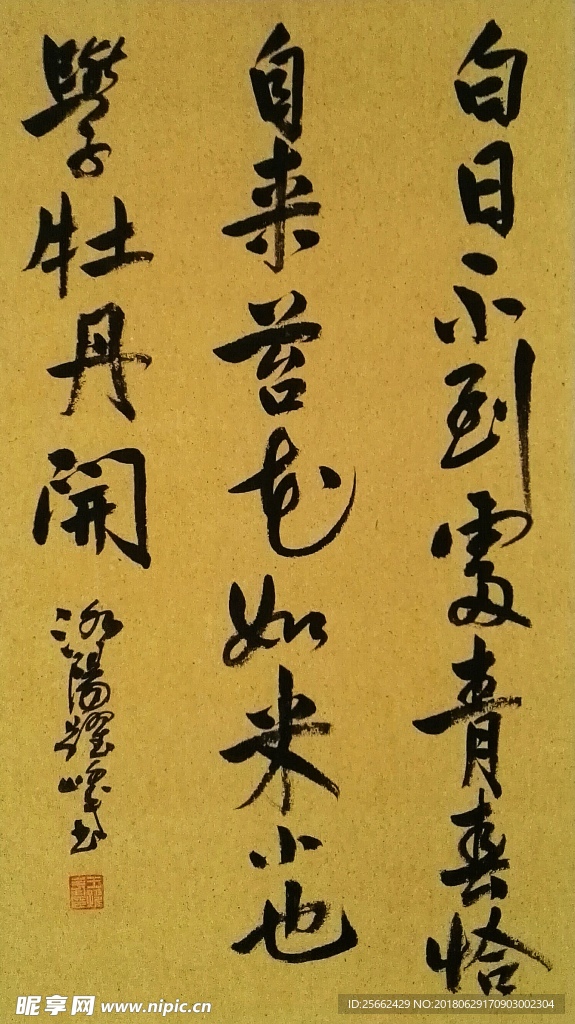 白日不到處青春恰
自来苔花如米小也
學牡丹開
洛陽
昵享网 www.nipic.cn
ID:25662429 NO:20180629170903002304